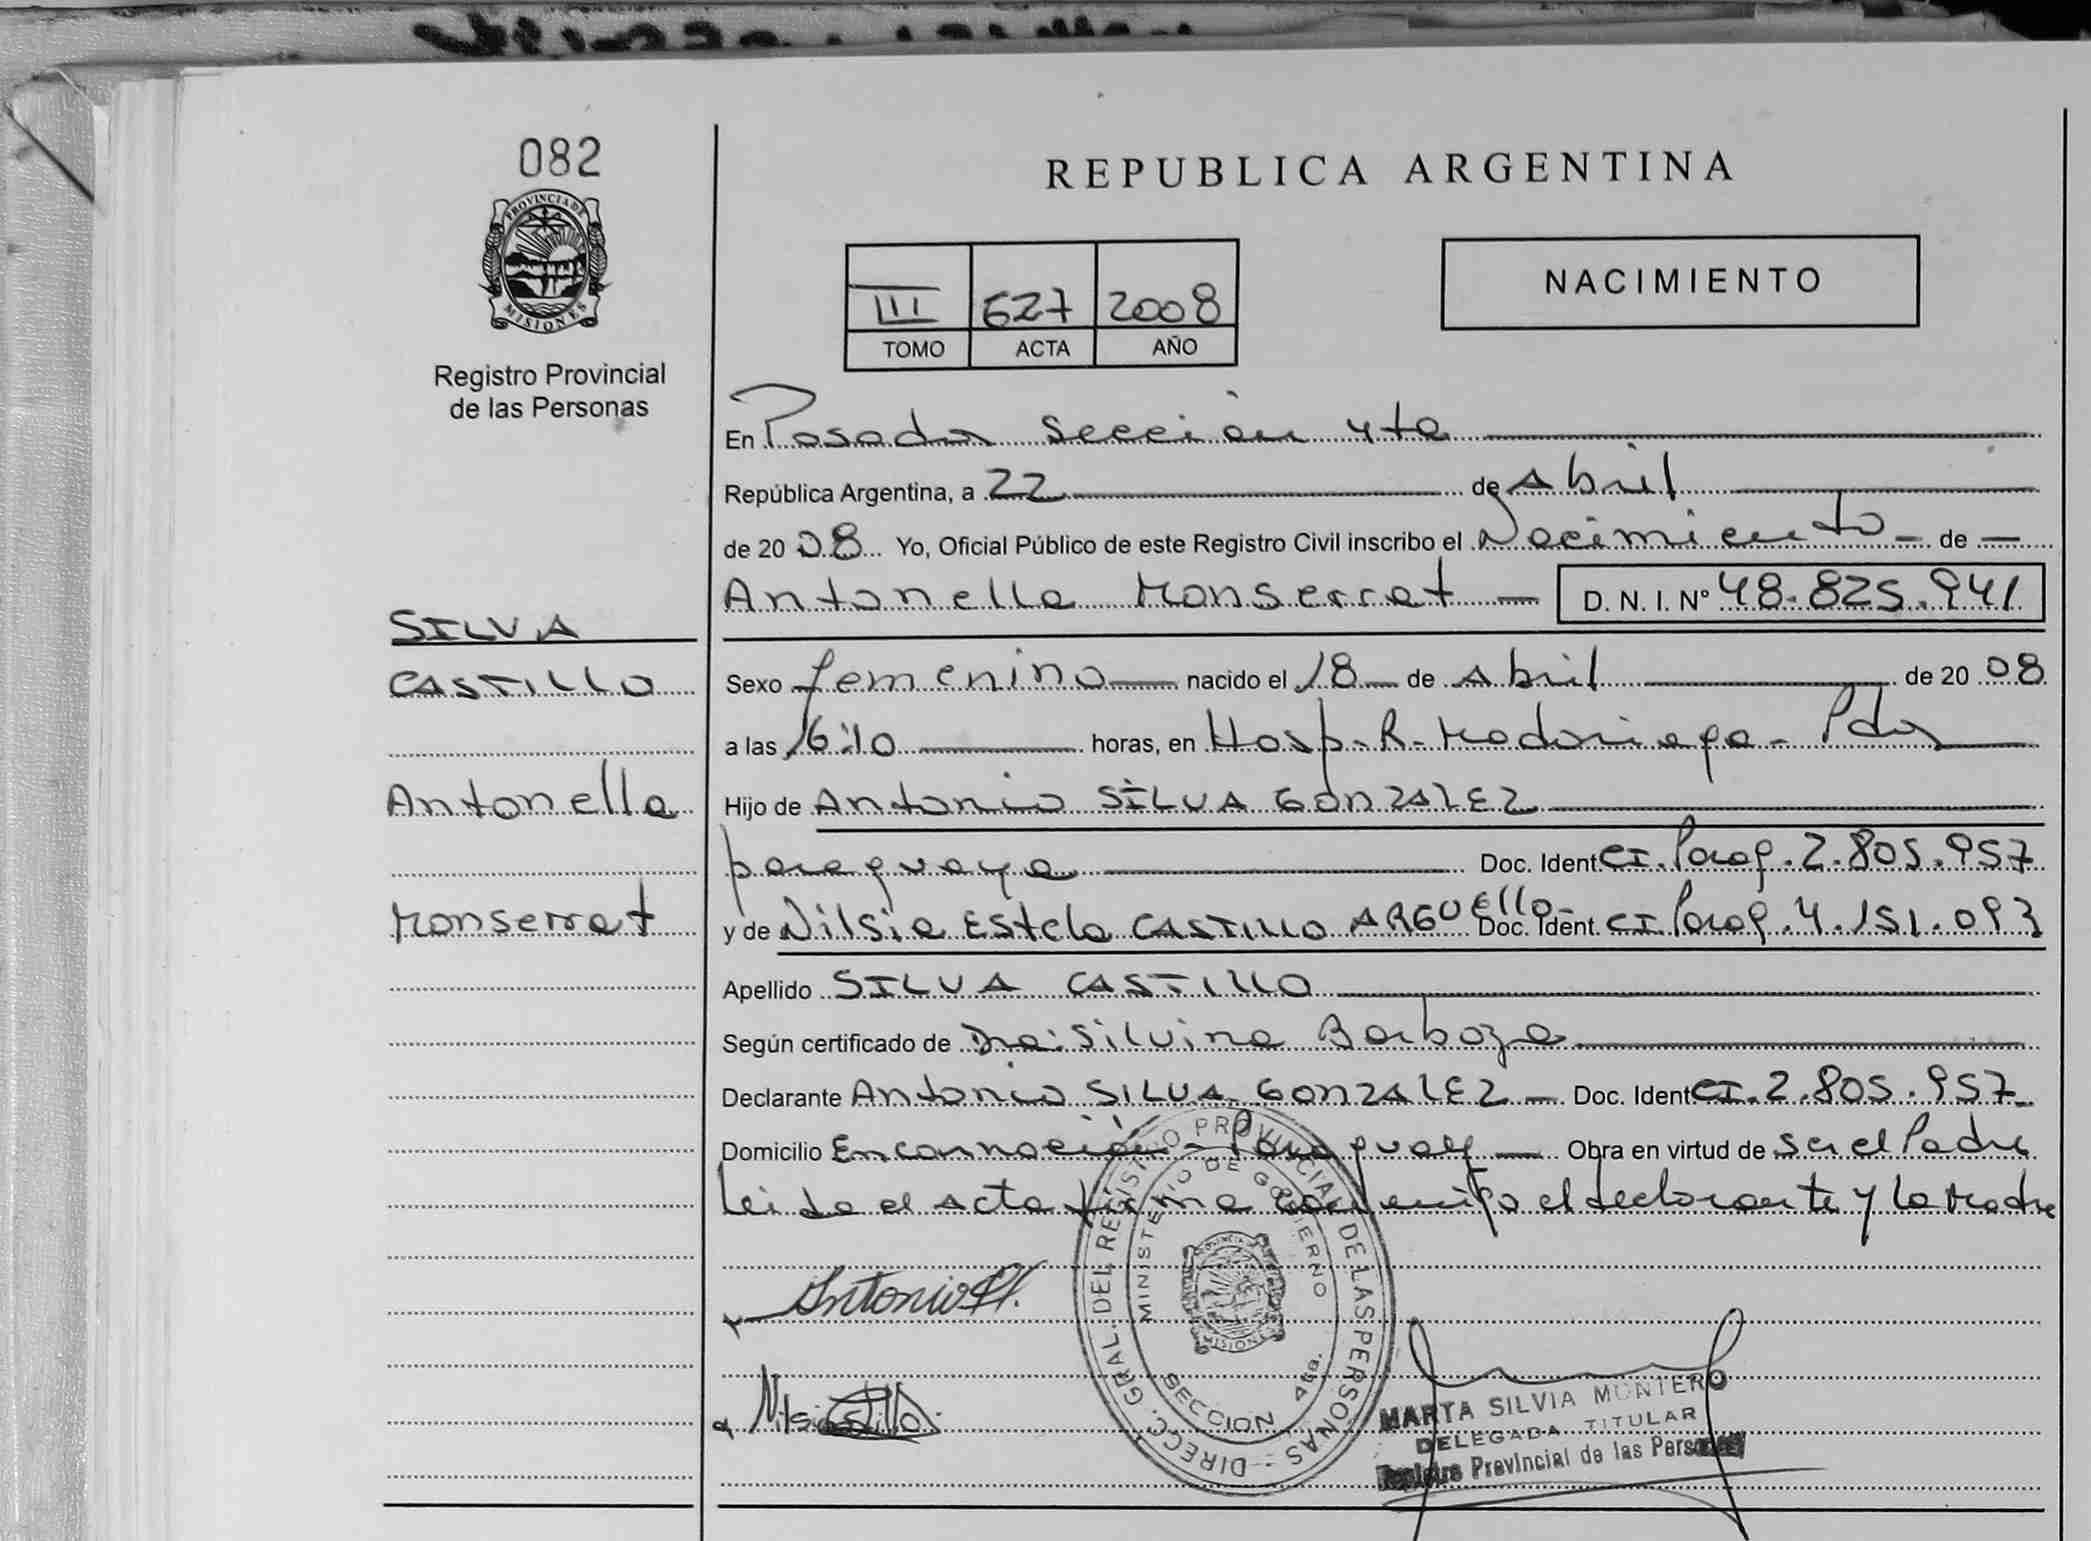 082
PROVINCIA DE
MISIONES
Registro Provincial
de las Personas
REPUBLICA ARGENTINA
NACIMIENTO
III 627 2008
TOMO ACTA AÑO
En Posadas Sección 4ta
República Argentina, a 22 de Abril
de 2008 Yo, Oficial Público de este Registro Civil inscribo el Nacimiento de
Antonella Monserrat D. N. I. Nº 48.825.941
SILVA
CASTILLO
Antonella
Monserrat
Sexo femenino nacido el 18 de Abril de 20 08
a las 16:10 horas, en Hosp. R. Madariaga - Pdas
Hijo de Antonio SILVA GONZALEZ
paraguaya Doc. Ident. CI. Parag. 2.805.957
y de Nilsia Estela CASTILLO ARGUello Doc. Ident. CI Parag. 4.151.093
Apellido SILVA CASTILLO
Según certificado de Dra: Silvina Barboza
Declarante Antonio SILVA GONZALEZ Doc. Ident CI. 2.805.957
Domicilio Encarnación - Paraguay Obra en virtud de ser el Padre
Leida el acta firma conmigo el declarante y la Madre
Antonio
DIRECC. GRAL. DEL REGISTRO PROVINCIAL DE LAS PERSONAS
MINISTERIO DE GOBIERNO
PROVINCIA
MISIONES
SECCION 4ta.
MARTA SILVIA MONTERO
DELEGADA TITULAR
Registro Provincial de las Personas